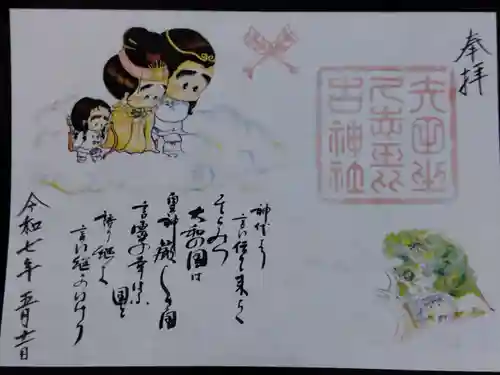 奉拝
神代より
言い伝て来らく
そらみつ
大和の国は
皇神の厳しき国
言霊の幸はふ
国と
語り継ぎ
言い継がひけり
令和七年 五月十一日